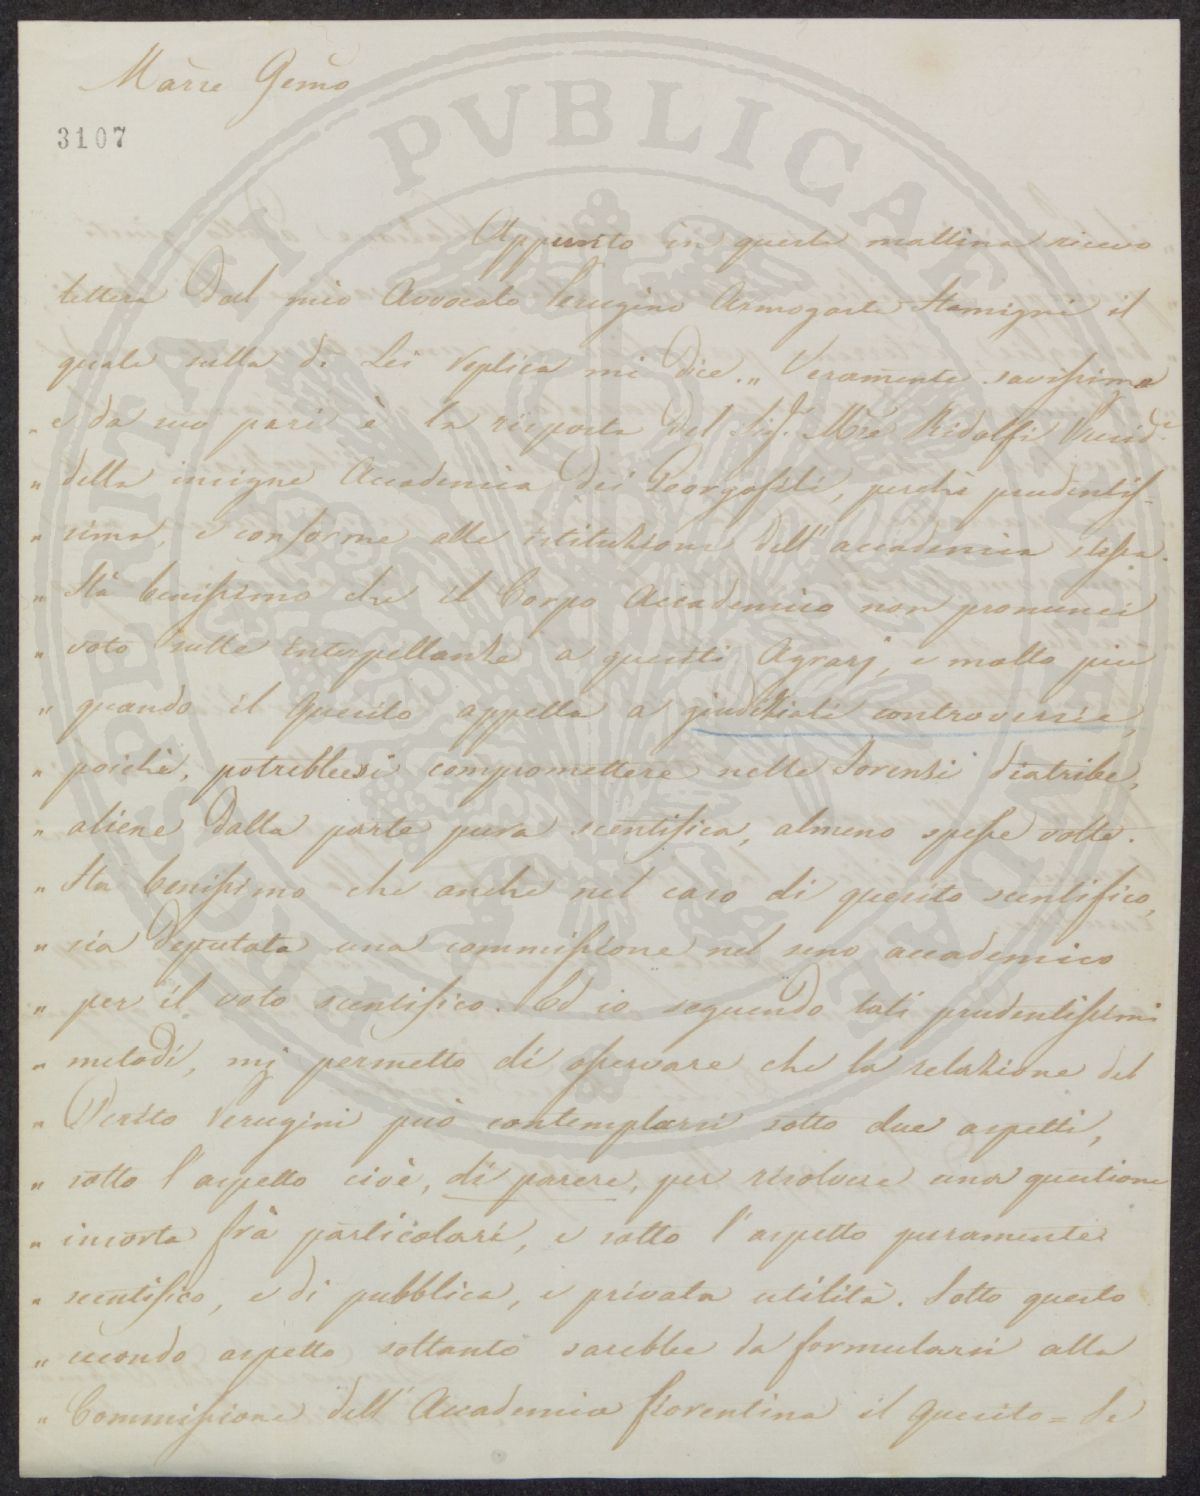 Marse Gemo
3107
Appunto in questa mattina ricevo
lettera dal mio Avvocato Perugino Armogaste Stamigni il
quale sulla di Lei replica mi dice. „ Veramente savissima
„ e da suo pari è la risposta del Sig.r Mse Ridolfi Presid.e
„ della insigne Accademia dei Georgofili, perché prudentis-
„ sima, e conforme alla istituzione dell'accademia stessa.
„ Stà benissimo che il Corpo Accademico non pronunci
„ voto sulle interpellanze a quesiti Agrarj, e molto più
„ quando il Quesito appella a giudiziali controversie,
„ poichè, potrebbesi compromettere nelle Forensi diatribe,
„ aliene dalla parte pura scentifica, almeno spesse volte.
„ Sta benissimo che anche nel caso di quesito scentifico,
„ sia deputata una commissione nel seno accademico
„ per il voto scentifico. Ed io seguendo tali prudentissimi
„ metodi, mj permetto di osservare che la relazione del
„ Perito Perugini può contemplarsi sotto due aspetti,
„ sotto l'aspetto cioè, di parere, per risolvere una questione
„ insorta frà particolari, e sotto l'aspetto puramente
„ scentifico, e di pubblica, e privata utilità. Sotto questo
„ secondo aspetto soltanto sarebbe da formularsi alla
„ Commissione dell'Accademia fiorentina il Quesito = Se